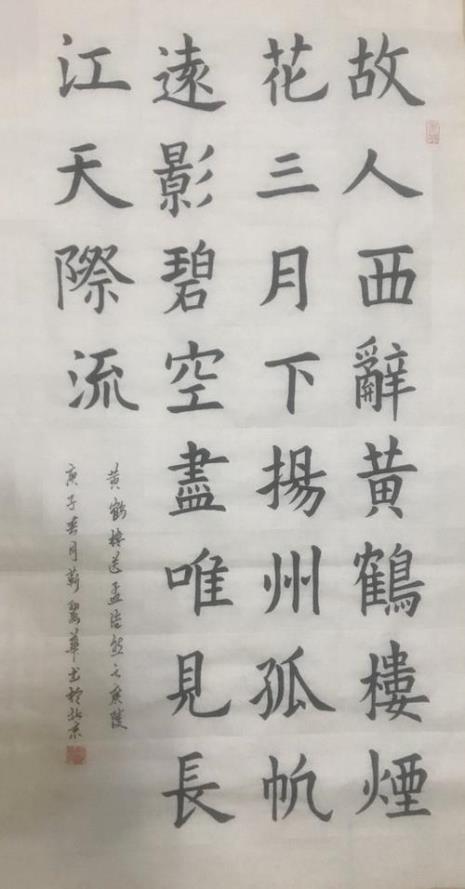 故人西辭黄鶴樓煙
花三月下揚州孤帆
遠影碧空盡唯見長
江天際流
黄鶴樓送孟浩然之廣陵
庚子春月靳華书於北京